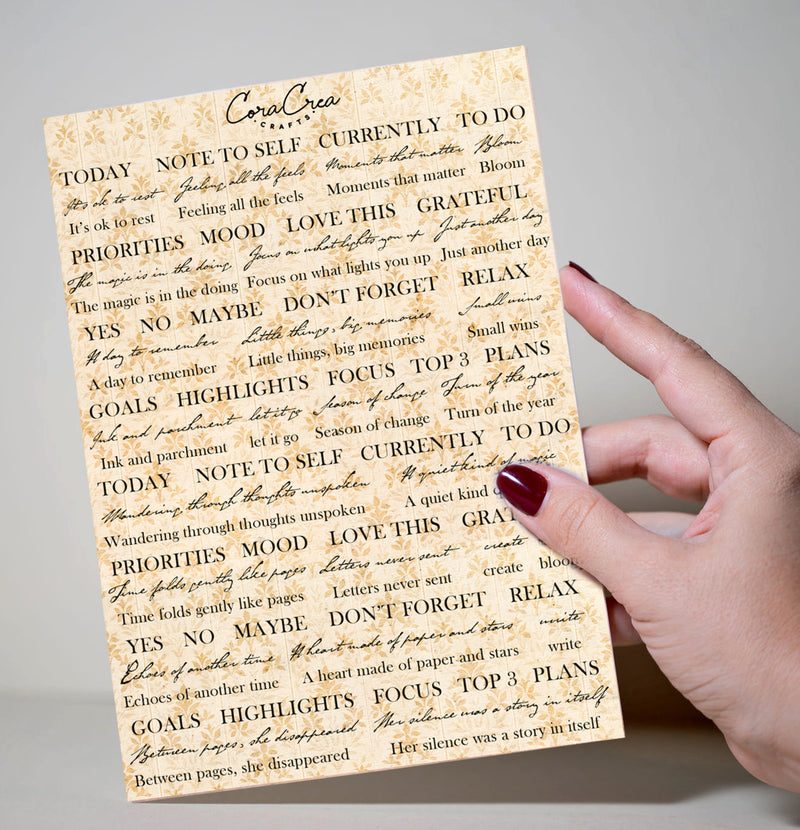 CoraCrea
CRAFTS
TODAY NOTE TO SELF CURRENTLY TO DO
It's ok to rest Feeling all the feels Moments that matter Bloom
It's ok to rest Feeling all the feels Moments that matter Bloom
PRIORITIES MOOD LOVE THIS GRATEFUL
The magic is in the doing Focus on what lights you up Just another day
The magic is in the doing Focus on what lights you up Just another day
YES NO MAYBE DON'T FORGET RELAX
A day to remember Little things, big memories Small wins
A day to remember Little things, big memories Small wins
GOALS HIGHLIGHTS FOCUS TOP 3 PLANS
Ink and parchment let it go Season of change Turn of the year
Ink and parchment let it go Season of change Turn of the year
TODAY NOTE TO SELF CURRENTLY TO DO
Wandering through thoughts unspoken A quiet kind of magic
Wandering through thoughts unspoken A quiet kind
PRIORITIES MOOD LOVE THIS GRAT
Time folds gently like pages Letters never sent create
Time folds gently like pages Letters never sent create bloom
YES NO MAYBE DON'T FORGET RELAX
Echoes of another time A heart made of paper and stars write
Echoes of another time A heart made of paper and stars write
GOALS HIGHLIGHTS FOCUS TOP 3 PLANS
Between pages, she disappeared Her silence was a story in itself
Between pages, she disappeared Her silence was a story in itself